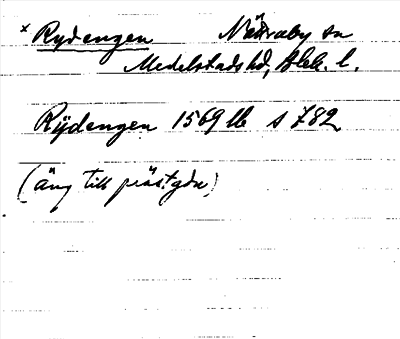 × Rydengen Nättraby sn
Medelstads hd, Blek. l.
Rÿdengen 1569 lb s 782
(äng till prästgdn)